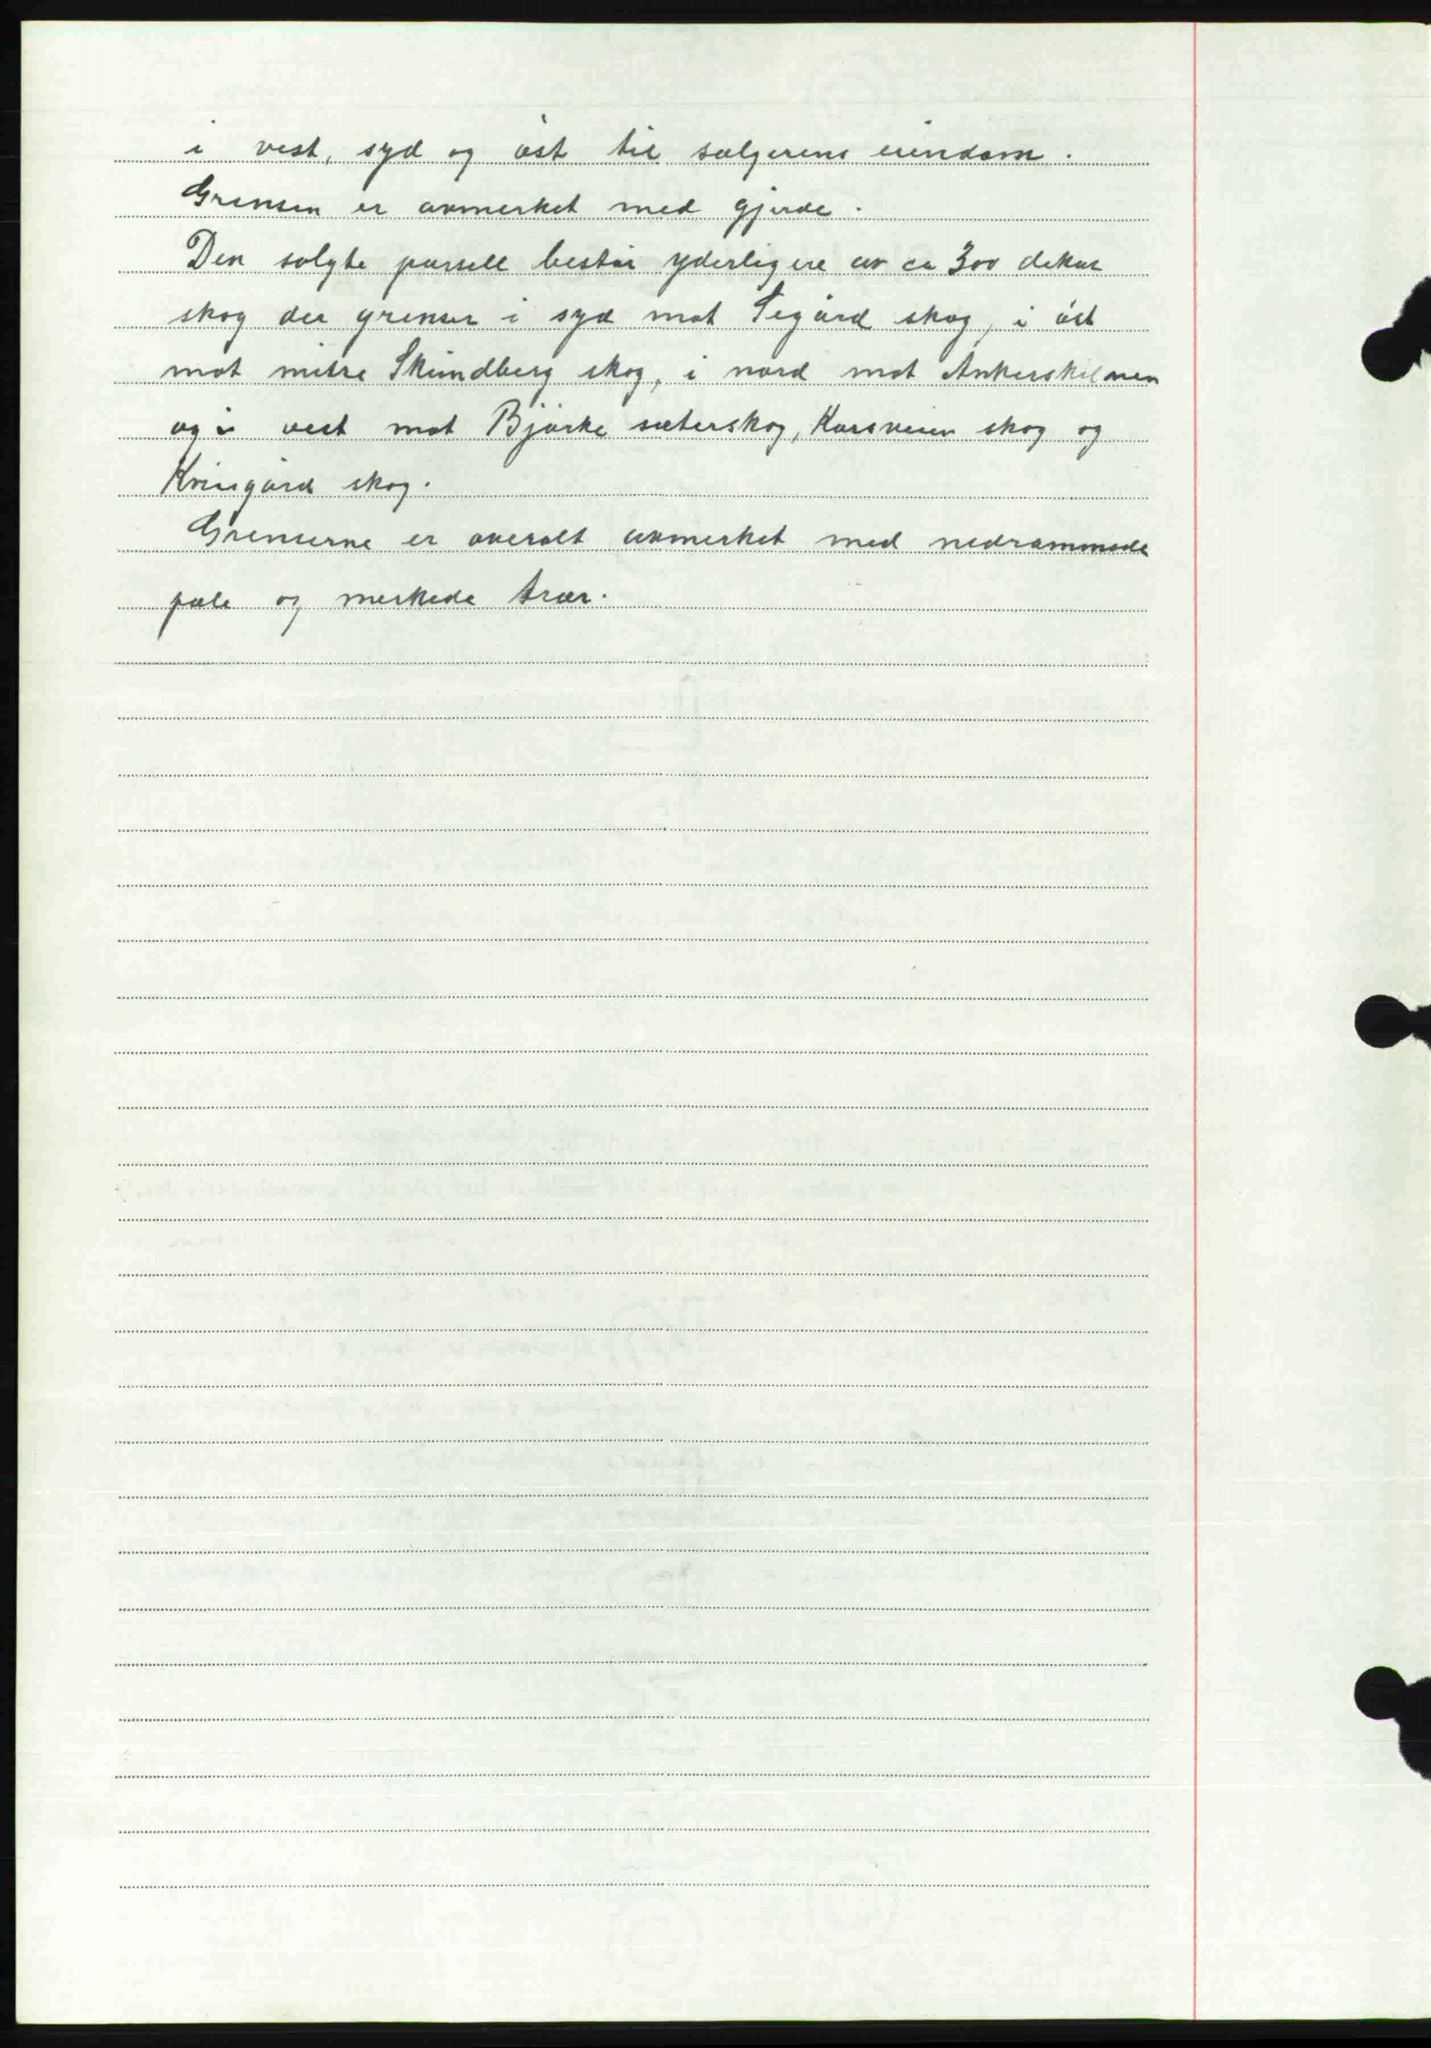 i vest, syd og øst til sælgerens eiendom.
Grensen er avmerket med gjerde.
Den solgte parsell består yderligere av ca 300 dekar
skog der grenser i syd mot Segård skog, i øst
mot mitre Skundberg skog, i nord mot Ankerskilnen
og i vest mot Bjørke sæterskog, Korsveien skog og
Kringård skog.
Grenserne er overalt avmerket med nedrammede
pæle og merkede trær.